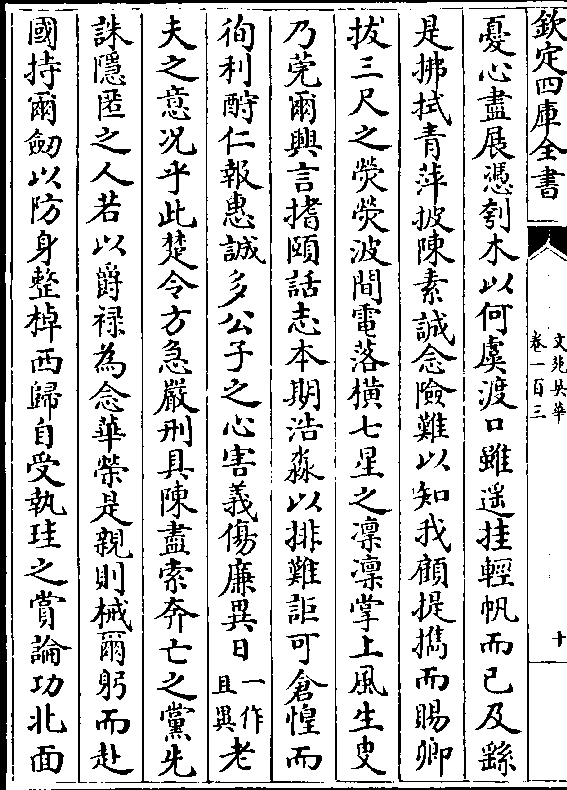 欽定四庫全書
文苑英華
卷一百三
十
憂心盡展憑刳木以何虞渡口雖遥挂輕帆而已及繇
是拂拭青萍披陳素誠念險難以知我顧提擕而賜卿
拔三尺之熒熒波間電落橫七星之凛凛掌上風生叟
乃莞爾興言揩頤話志本期浩淼以排難詎可倉惶而
徇利酧仁報惠誠多公子之心害義傷廉異日一作且異老
夫之意况乎此楚令方急嚴刑具陳盡索奔亡之黨先
誅隱匿之人若以爵禄為念華榮是親則械爾躬而赴
國持爾劒以防身整棹西歸自受執珪之賞論功北面